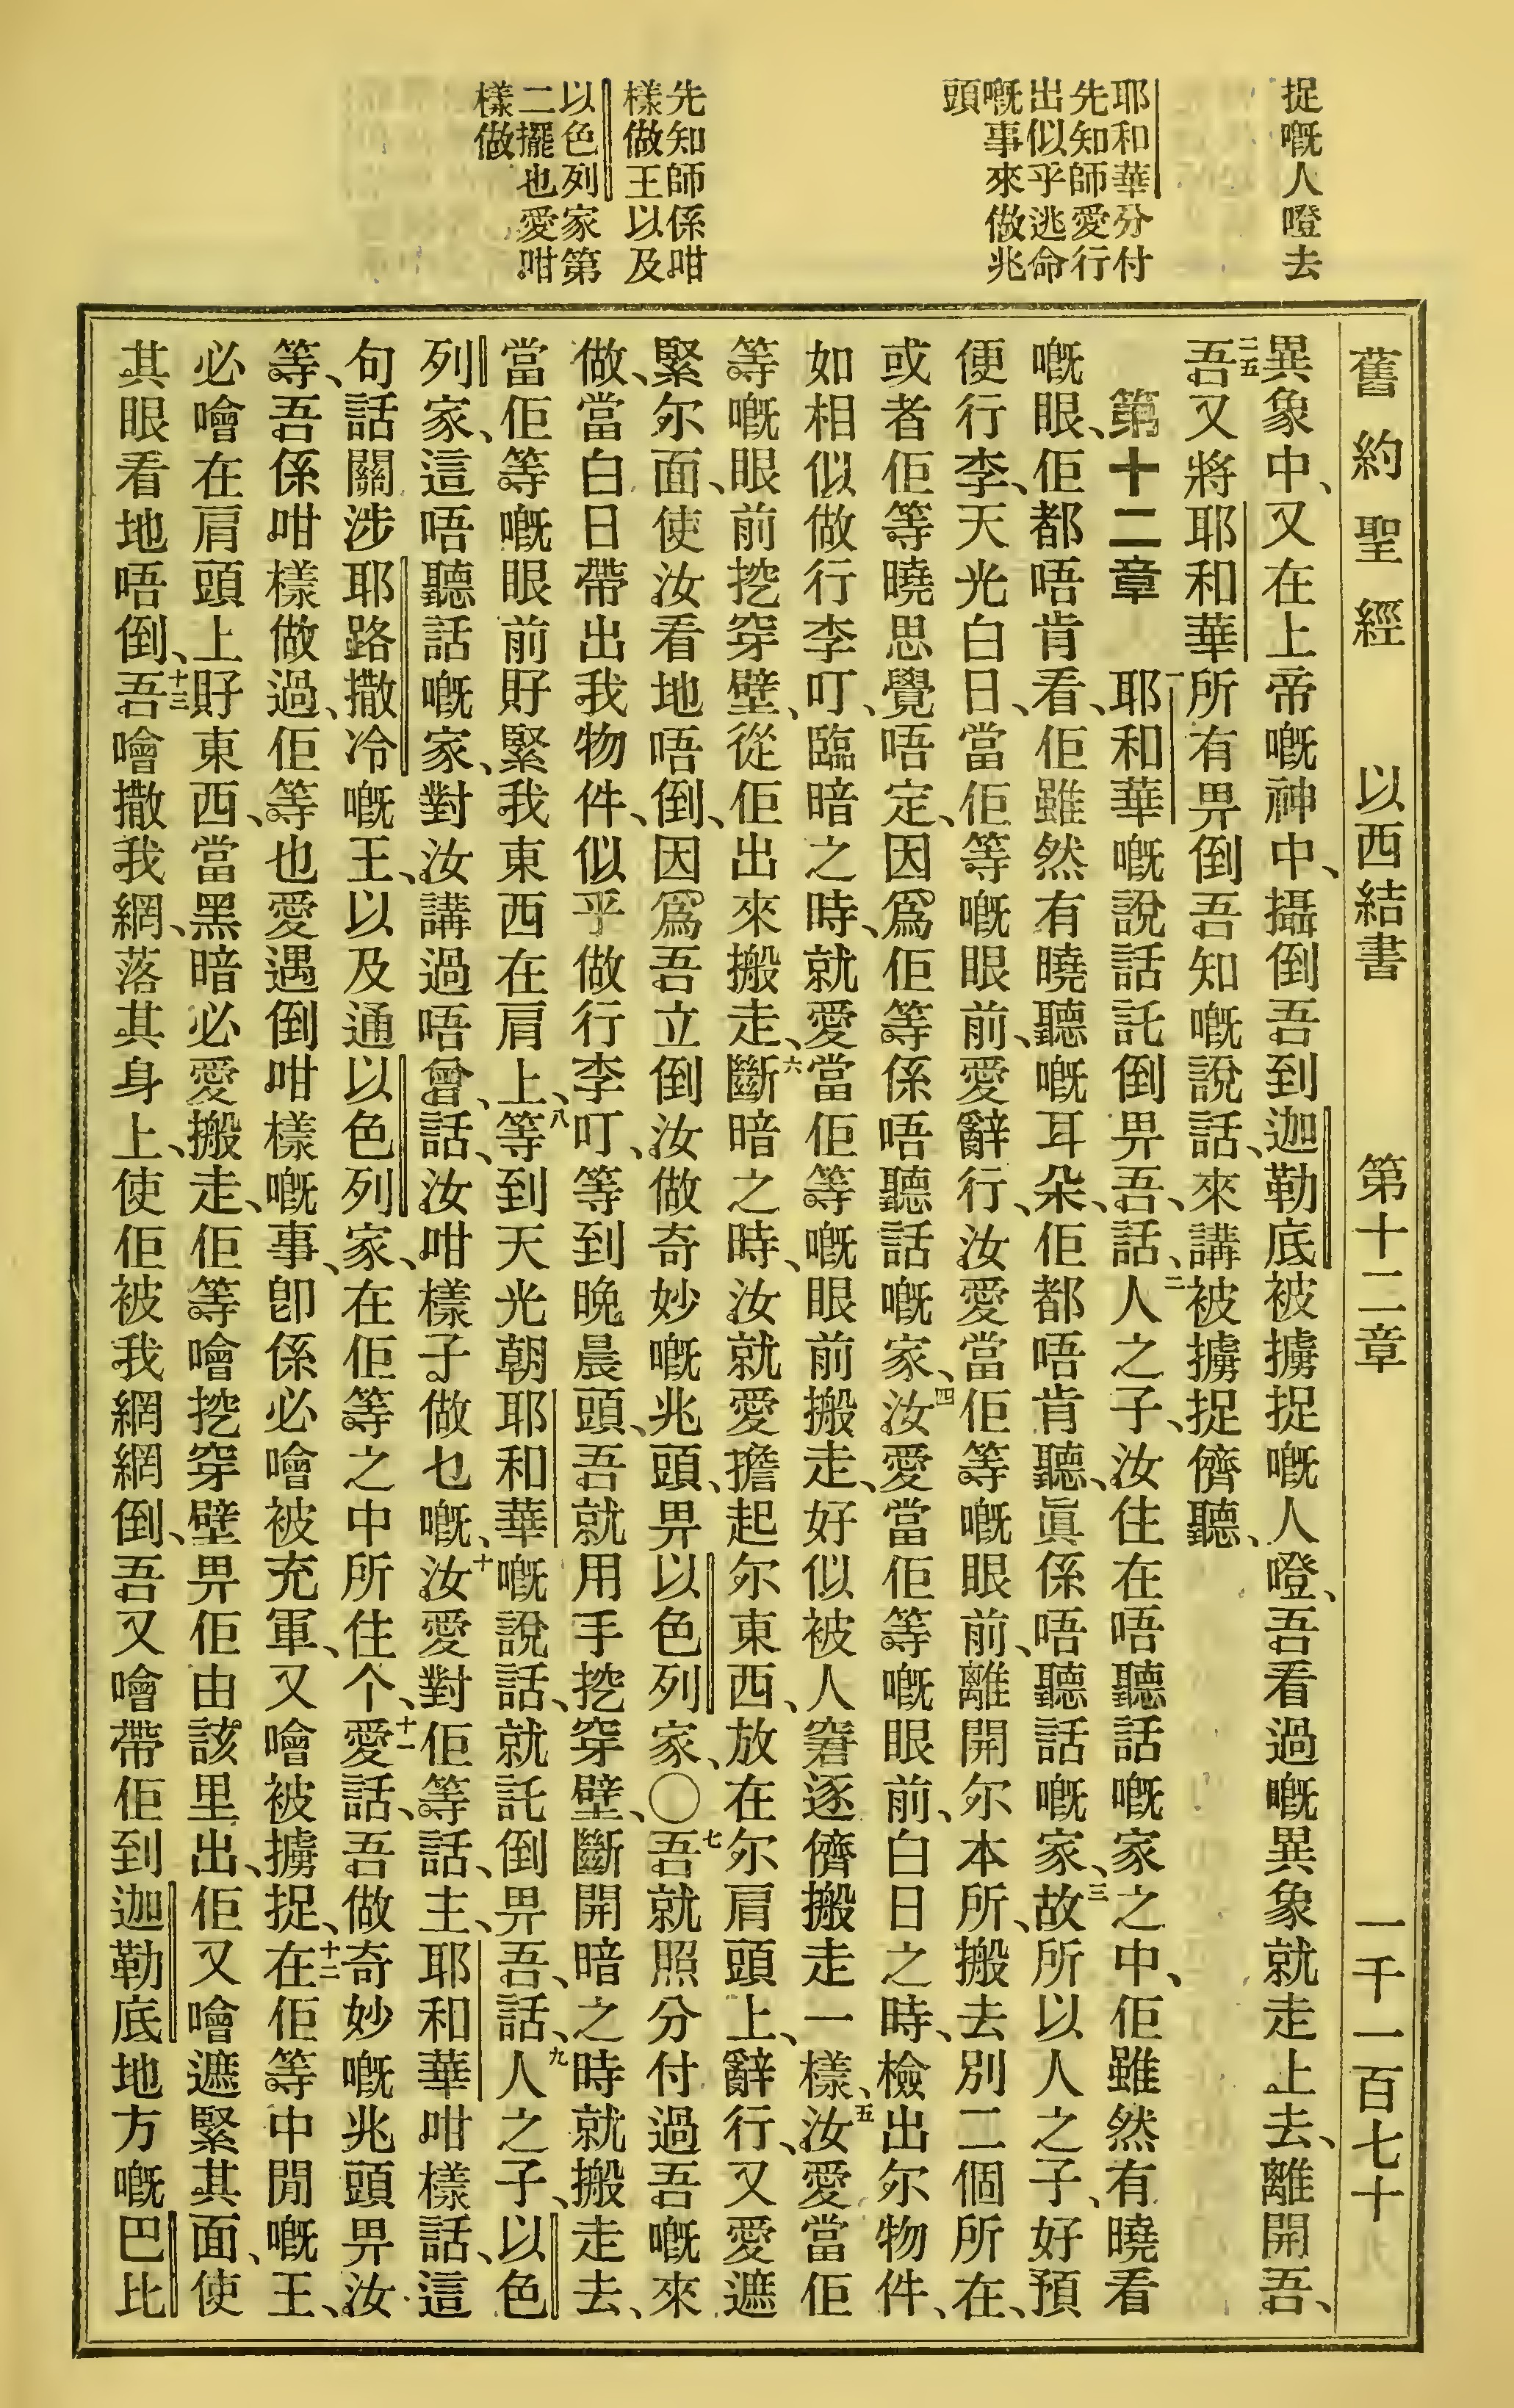 捉嘅人噔去
耶和華分付
先知師愛行
出似乎逃命
嘅事來做兆
頭
先知師係咁
樣做王以及
以色列家第
二擺也愛咁
樣做
舊約聖經 以西結書 第十二章 一千一百七十
異象中、又在上帝嘅神中、攝倒吾到迦勒底被擄捉嘅人噔、吾看過嘅異象就走上去、離開吾、
二五吾又將耶和華所有畀倒吾知嘅說話、來講被擄捉儕聽、
第十二章 一耶和華嘅說話託倒畀吾、話、二人之子、汝住在唔聽話嘅家之中、佢雖然有曉看
嘅眼、佢都唔肯看、佢雖然有曉聽嘅耳朵、佢都唔肯聽、眞係唔聽話嘅家、三故所以人之子、好預
便行李、天光白日、當佢等嘅眼前、愛辭行、汝愛當佢等嘅眼前、離開尔本所、搬去別二個所在、
或者佢等曉思覺唔定、因爲佢等係唔聽話嘅家、四汝愛當佢等嘅眼前、白日之時、檢出尔物件、
如相似做行李叮、臨暗之時、就愛當佢等嘅眼前搬走、好似被人窘逐儕搬走一樣、五汝愛當佢
等嘅眼前挖穿壁、從佢出來搬走、六斷暗之時、汝就愛擔起尔東西、放在尔肩頭上、辭行、又愛遮
緊尔面、使汝看地唔倒、因爲吾立倒汝做奇妙嘅兆頭、畀以色列家、〇七吾就照分付過吾嘅來
做、當白日帶出我物件、似乎做行李叮、等到晚晨頭、吾就用手挖穿壁、斷開暗之時就搬走去、
當佢等嘅眼前𧵳緊我東西在肩上、八等到天光朝耶和華嘅說話、就託倒畀吾、話、九人之子、以色
列家、這唔聽話嘅家、對汝講過唔曾、話、汝咁樣子做乜嘅、十汝愛對佢等話、主、耶和華咁樣話、這
句話關涉耶路撒冷嘅王、以及通以色列家、在佢等之中所住个、十一愛話、吾做奇妙嘅兆頭畀汝
等、吾係咁樣做過、佢等也愛遇倒咁樣嘅事、卽係必噲被充軍、又噲被擄捉、十二在佢等中間嘅王、
必噲在肩頭上𧵳東西、當黑暗必愛搬走、佢等噲挖穿壁畀佢由該里出、佢又噲遮緊其面、使
其眼看地唔倒、十三吾噲撒我網、落其身上、使佢被我網網倒、吾又噲帶佢到迦勒底地方嘅巴比